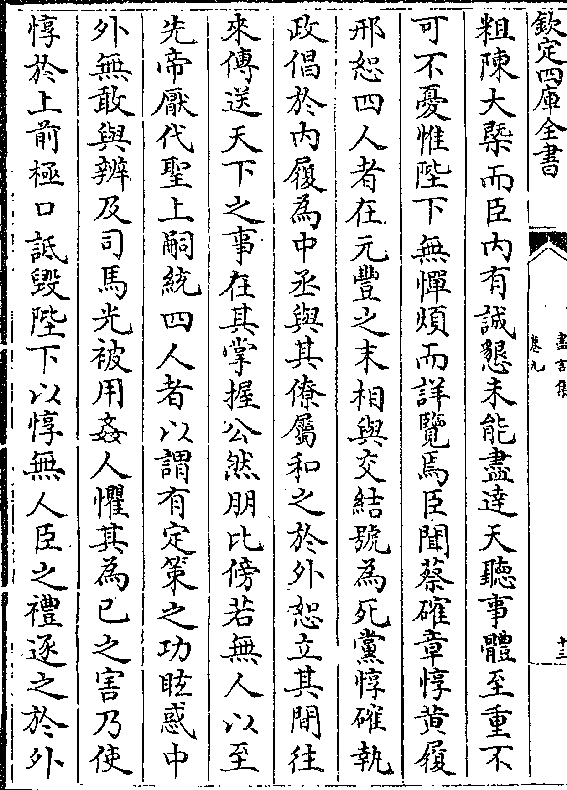 欽定四庫全書
盡言集
卷九
十三
粗陳大槩而臣内有誠懇未能盡達天聽事體至重不
可不憂惟陛下無憚煩而詳覽焉臣聞蔡確章惇黄履
邢恕四人者在元豐之末相與交結號為死黨惇確執
政倡於内履為中丞與其僚屬和之於外恕立其間往
來傳送天下之事在其掌握公然朋比傍若無人以至
先帝厭代聖上嗣統四人者以謂有定策之功眩惑中
外無敢與辨及司馬光被用姦人懼其為已之害乃使
惇於上前極口詆毀陛下以惇無人臣之禮逐之於外